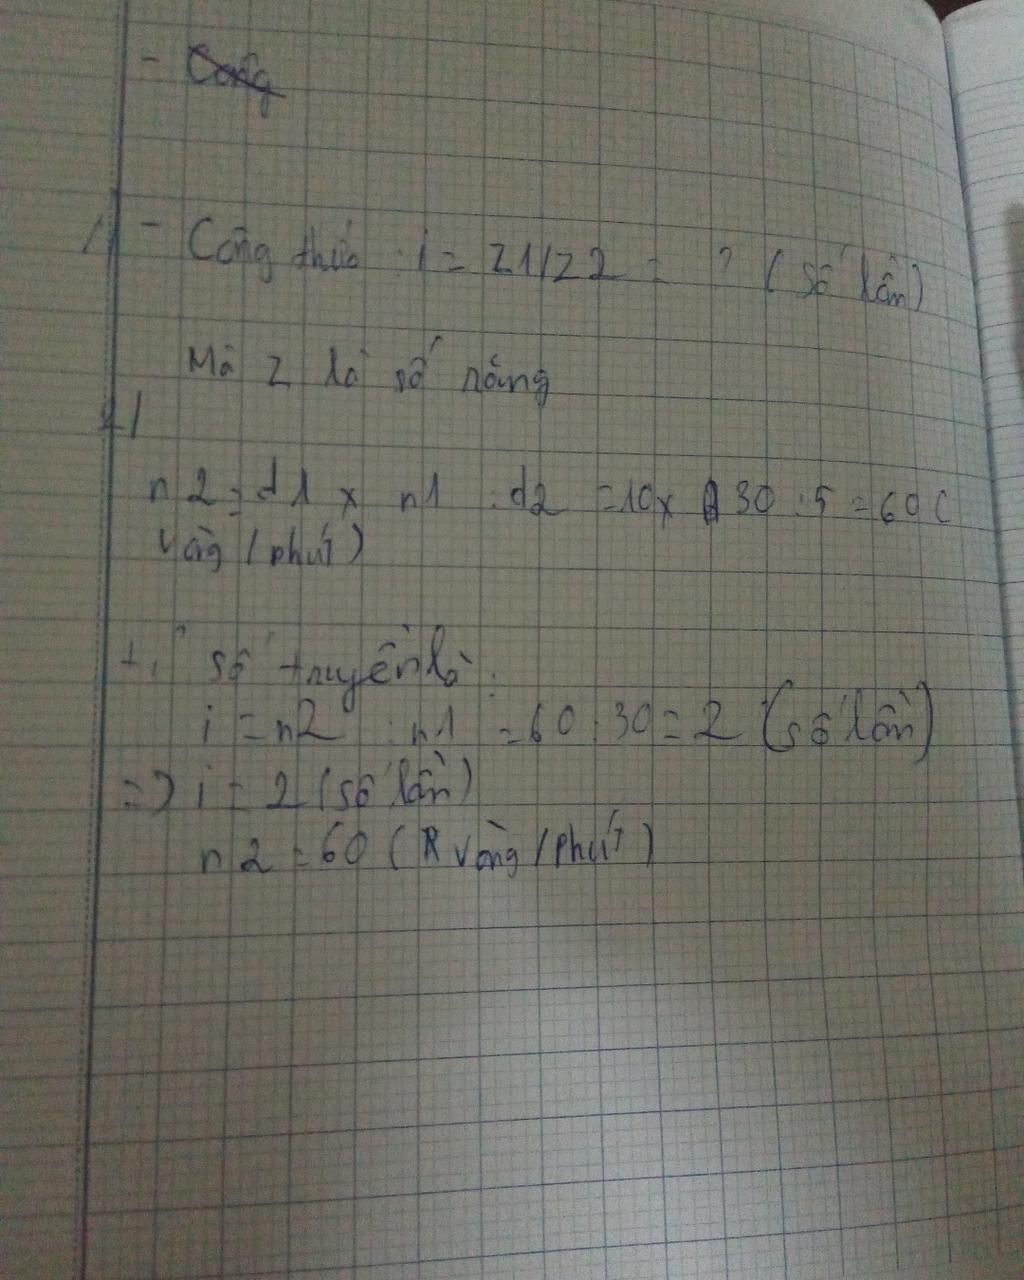 -
1/ - Công thức : i = Z1/Z2 = ? (số lần)
Mà Z là số răng
2/
n2 = d1 x n1 : d2 = 10 x 30 : 5 = 60 (
vòng / phút)
Tỉ số truyền là :
i = n2 : n1 = 60 : 30 = 2 (số lần)
=> i = 2 (số lần)
n2 = 60 ( vòng / phút )